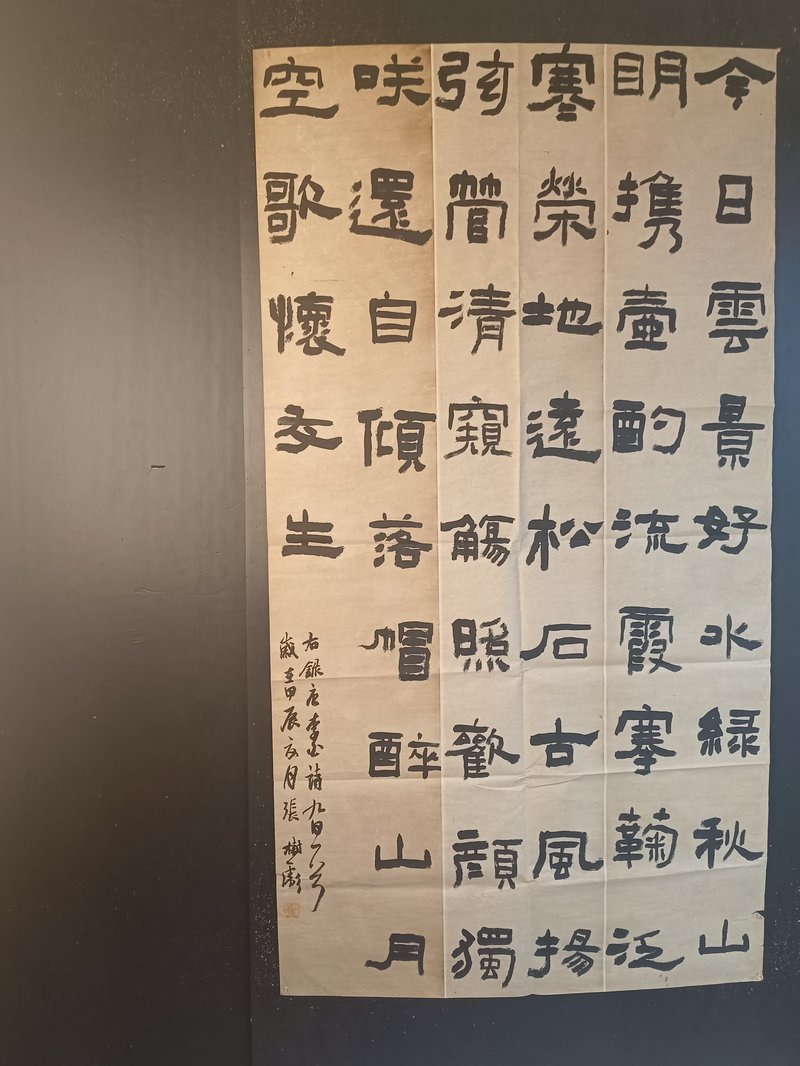 今日雲景好水緑秋山
眀携壺酌流霞搴鞠泛
寒榮地遠松石古風揚
弦管清窺觴照歡顔獨
咲還自傾落帽醉山月
空歌懷友生
右録唐李白詩九日一首
歲在甲辰月張樹